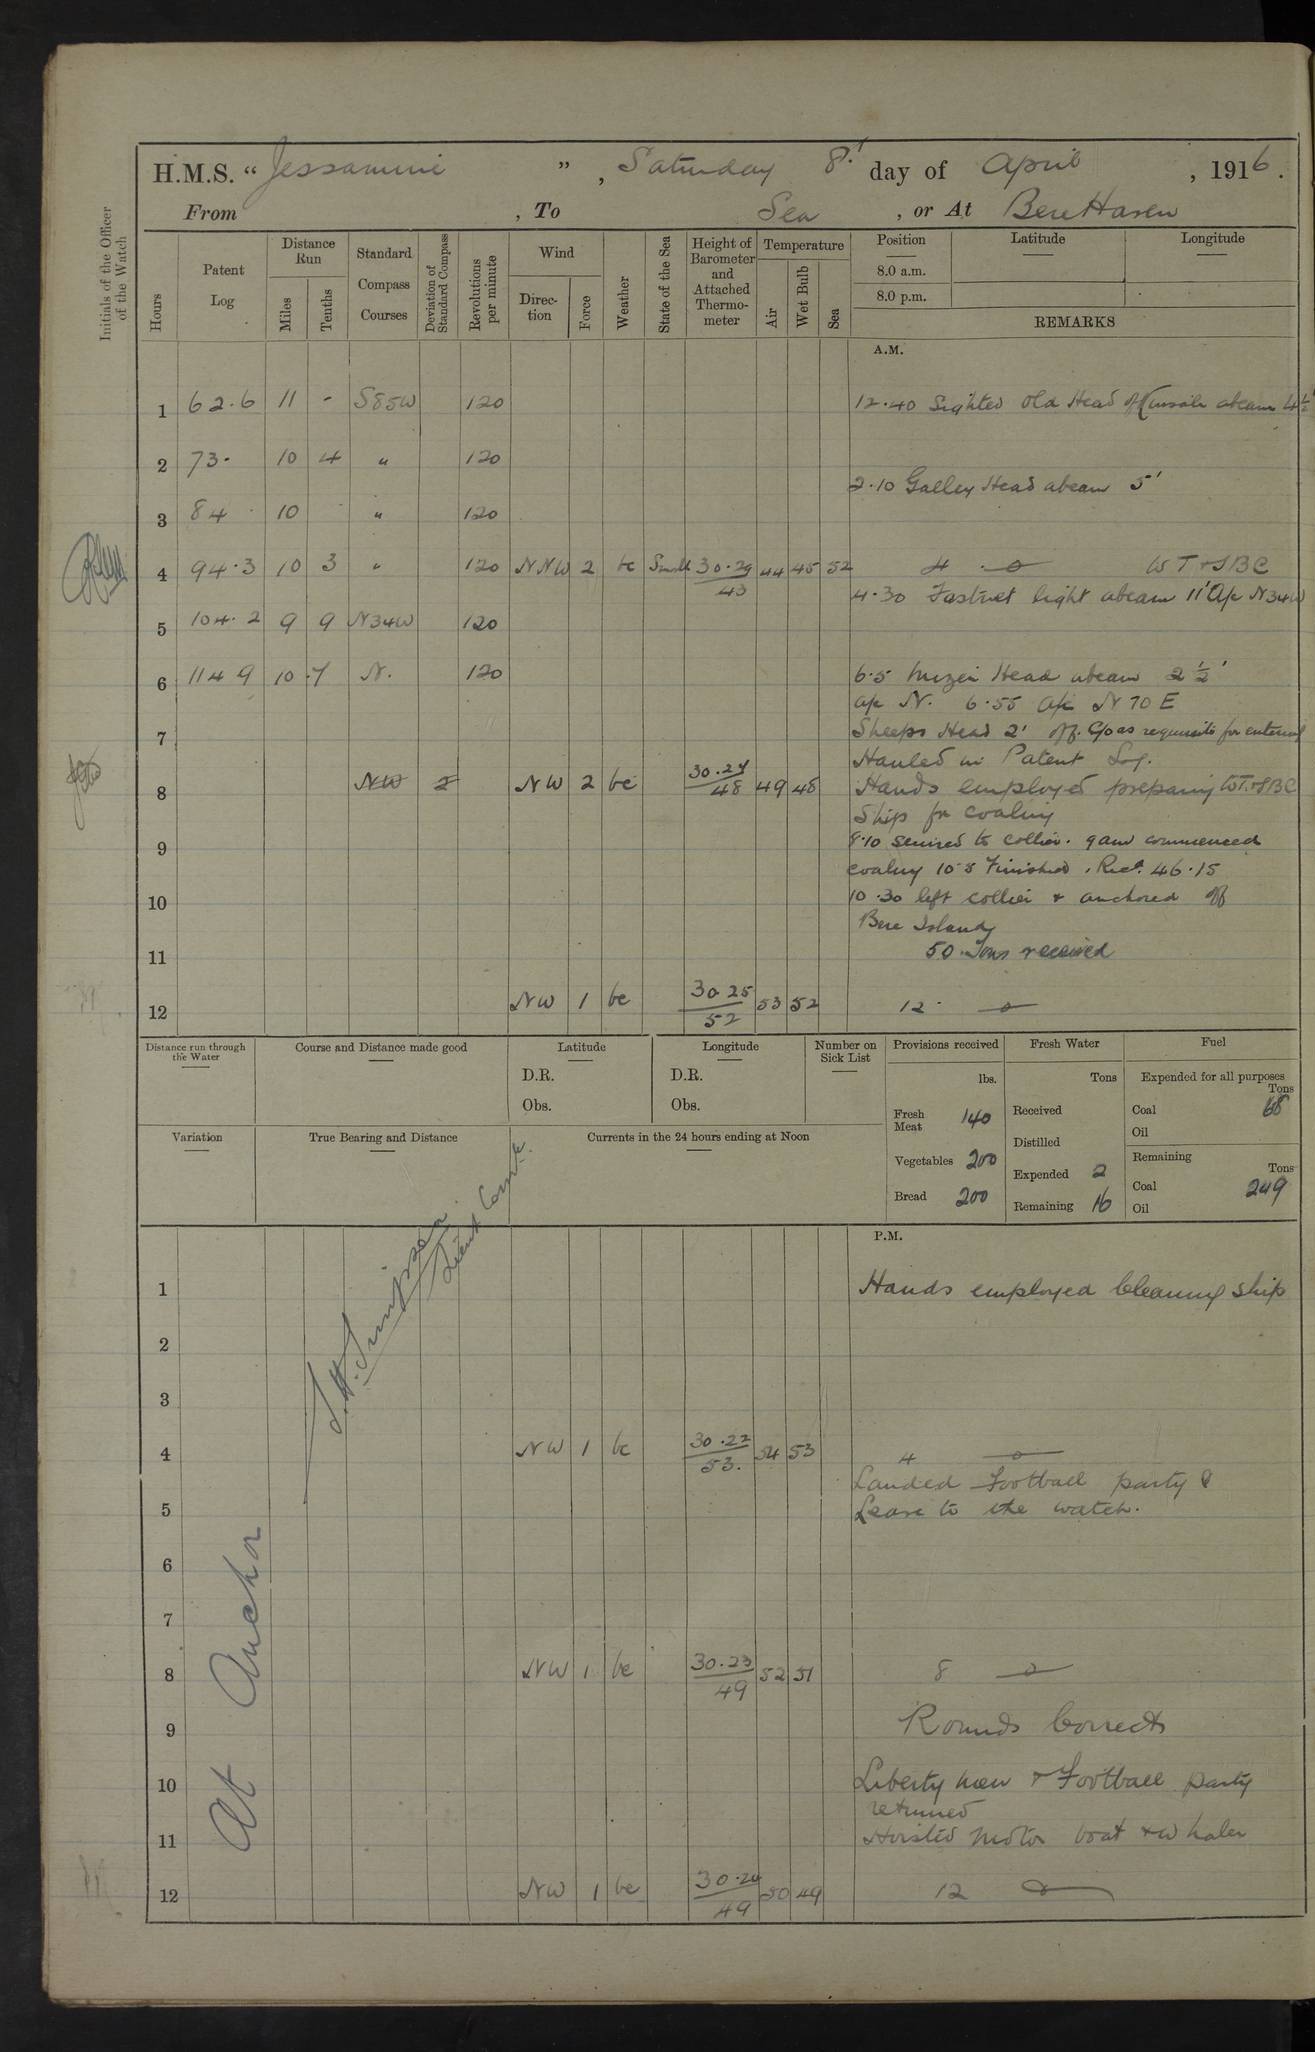 H.M.S. “Jessamine”, Saturday 8' day of April, 1916.
From , To Sea , or At Bere Haven
Initials of the Officer of the Watch
Hours
Patent Log
Distance Run
Miles
Tenths
Standard Compass Courses
Deviation of Standard Compass
Revolutions per minute
Wind
Direction
Force
Weather
State of the Sea
Height of Barometer and Attached Thermometer
Temperature
Air
Wet Bulb
Sea
Position
8.0 a.m.
8.0 p.m.
Latitude
Longitude
REMARKS
A.M.
1 62.6 11 - S85W 120 12.40 Sighted Old Head of Kinsale abeam 4½'
2 73. 10 4 " 120
2.10 Galley Head abeam 5'
3 84 10 " 120
4 94.3 10 3 " 120 NNW 2 bc 30.29 43 44 45 52 4 WT+SBC
4.30 Fastnet light abeam 11' A/c N34W
5 104.2 9 9 N34W 120
6 114 9 10 .7 N. 120 6.5 Mizen Head abeam 2½'
a/c N. 6.55 a/c N 70 E
7 Sheeps Head 2' off. C/o as requisite for entering
Hauled in Patent Log.
8 NW 2 NW 2 bc 30.27 48 49 48 Hands employed preparing WT+SBC
Ship for coaling
9 8.10 secured to collier. 9 am commenced
coaling 10.5 Finished. Recd. 46.15
10 10.30 left collier & anchored off
Bere Island
11 50 Tons received
12 NW 1 bc 30 25 52 53 52 12.
Distance run through the Water
Course and Distance made good
Latitude
D.R.
Obs.
Longitude
D.R.
Obs.
Number on Sick List
Provisions received
lbs.
Fresh Meat 140
Vegetables 200
Bread 200
Fresh Water
Tons
Received
Distilled
Expended 2
Remaining 16
Fuel
Expended for all purposes
Tons
Coal 68
Oil
Remaining
Tons
Coal 249
Oil
Variation
True Bearing and Distance
Currents in the 24 hours ending at Noon
P.M.
S.H. Simpson
Lieut Comr.
At Anchor
1 Hands employed Cleaning Ship
2
3
4 NW 1 bc 30.22 53. 54 53 4
Landed Football party &
5 Leave to the watch.
6
7
8 NW 1 bc 30.23 49 52 51 8
9 Rounds Correct
10 Liberty men & Football party
returned
11 Hoisted motor boat & whaler
12 NW 1 bc 30.24 49 50 49 12